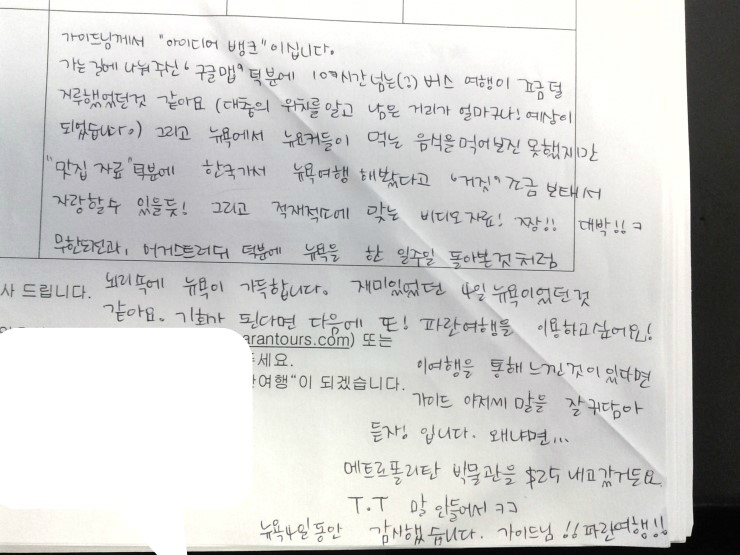 가이드님께서 "아이디어 뱅크"이십니다.
가는길에 나눠주신 "구글맵" 덕분에 10여시간넘는(?) 버스 여행이 조금 덜
지루했었던것 같아요 (대충의 위치를 알고 남은 거리가 얼마구나! 예상이
되었습니다.) 그리고 뉴욕에서 뉴요커들이 먹는 음식을 먹어보진 못했지만
"맛집 자료"덕분에 한국가서 뉴욕여행 해봤다고 "거짓" 조금 보태서
자랑할수 있을듯! 그리고 적재적소에 맞는 비디오자료! 짱!! 대박!! ㅋ
무한도전과, 어거스트러쉬 덕분에 뉴욕을 한 일주일 돌아본것처럼
사 드립니다. 뇌리속에 뉴욕이 가득합니다. 재미있었던 4일 뉴욕이었던것
같아요. 기회가 된다면 다음에 또! 파란여행을 이용하고싶어요!
arantours.com) 또는
세요. 이여행을 통해 느낀것이 있다면
여행"이 되겠습니다. 가이드 아저씨 말을 잘 귀담아
듣자! 입니다. 왜냐면...
메트로폴리탄 박물관을 $25 내고갔거든요
T.T 말 안들어서 ㅋㅋ
뉴욕4일동안 감사했습니다. 가이드님!! 파란여행!!